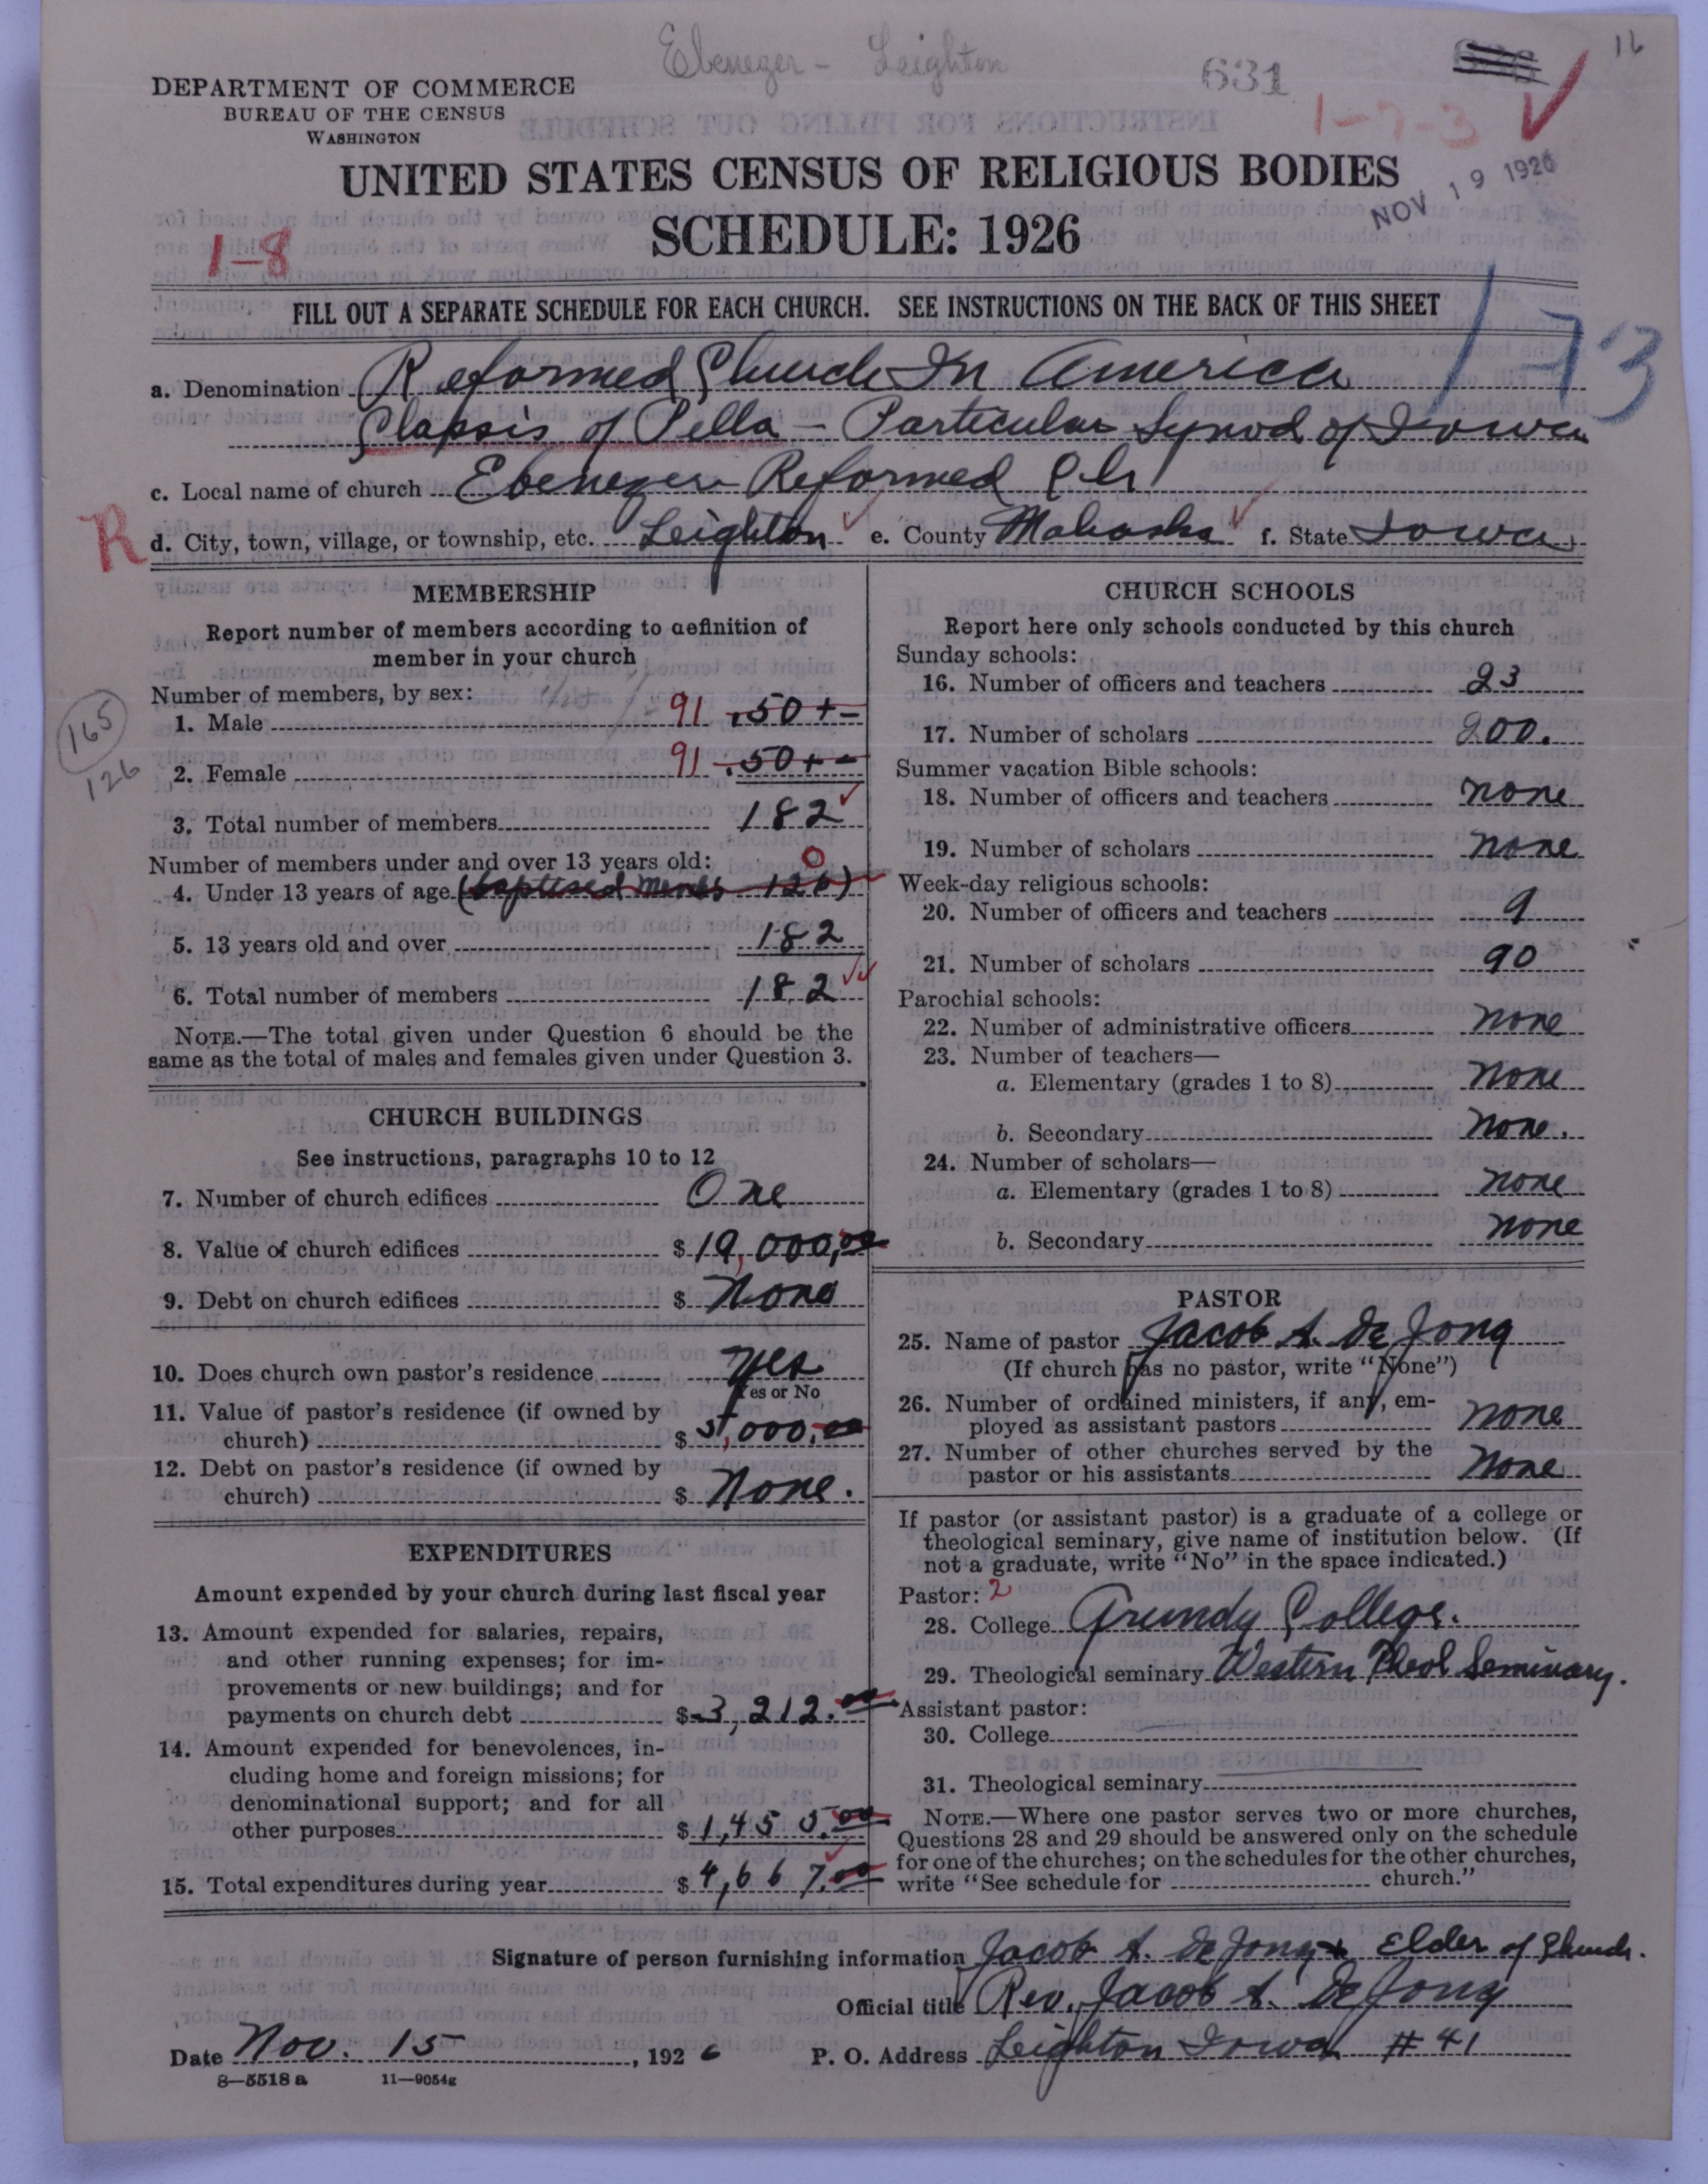 Ebenezer - Leighton
631
16
DEPARTMENT OF COMMERCE
BUREAU OF THE CENSUS
WASHINGTON
1-7-3
UNITED STATES CENSUS OF RELIGIOUS BODIES
NOV 19 1926
SCHEDULE: 1926
1-8
FILL OUT A SEPARATE SCHEDULE FOR EACH CHURCH. SEE INSTRUCTIONS ON THE BACK OF THIS SHEET
173
a. Denomination Reformed Church In America
Classis of Pella - Particular Synod of Iowa
c. Local name of church Ebenezer Reformed Ch
R
d. City, town, village, or township, etc. Leighton e. County Mahaska f. State Iowa
MEMBERSHIP
Report number of members according to definition of
member in your church
Number of members, by sex:
1. Male 91 50 + -
165
2. Female 91 50 + -
126
3. Total number of members 182
Number of members under and over 13 years old: 0
4. Under 13 years of age (baptised memb's 126)
5. 13 years old and over 182
6. Total number of members 182
NOTE.—The total given under Question 6 should be the
same as the total of males and females given under Question 3.
CHURCH BUILDINGS
See instructions, paragraphs 10 to 12
7. Number of church edifices One
8. Value of church edifices $ 19,000,00
9. Debt on church edifices $ None
10. Does church own pastor's residence yes
Yes or No
11. Value of pastor's residence (if owned by
church) $ 5,000.00
12. Debt on pastor's residence (if owned by
church) $ None.
EXPENDITURES
Amount expended by your church during last fiscal year
13. Amount expended for salaries, repairs,
and other running expenses; for im-
provements or new buildings; and for
payments on church debt $ 3,212.00
14. Amount expended for benevolences, in-
cluding home and foreign missions; for
denominational support; and for all
other purposes $ 1,455.00
15. Total expenditures during year $ 4,667.00
CHURCH SCHOOLS
Report here only schools conducted by this church
Sunday schools:
16. Number of officers and teachers 23
17. Number of scholars 200.
Summer vacation Bible schools:
18. Number of officers and teachers none
19. Number of scholars none
Week-day religious schools:
20. Number of officers and teachers 9
21. Number of scholars 90
Parochial schools:
22. Number of administrative officers none
23. Number of teachers—
a. Elementary (grades 1 to 8) none
b. Secondary none.
24. Number of scholars—
a. Elementary (grades 1 to 8) none
b. Secondary none
PASTOR
25. Name of pastor Jacob A. De Jong
(If church has no pastor, write "None")
26. Number of ordained ministers, if any, em-
ployed as assistant pastors none
27. Number of other churches served by the
pastor or his assistants None
If pastor (or assistant pastor) is a graduate of a college or
theological seminary, give name of institution below. (If
not a graduate, write "No" in the space indicated.)
Pastor: 2
28. College Grundy College.
29. Theological seminary Western Theol Seminary.
Assistant pastor:
30. College
31. Theological seminary
NOTE.—Where one pastor serves two or more churches,
Questions 28 and 29 should be answered only on the schedule
for one of the churches; on the schedules for the other churches,
write "See schedule for church."
Signature of person furnishing information Jacob A. De Jong + Elder of Church.
Official title Rev. Jacob A. De Jong
Date Nov. 15, 1926 P. O. Address Leighton Iowa #41
8—5518 a 11—9054g